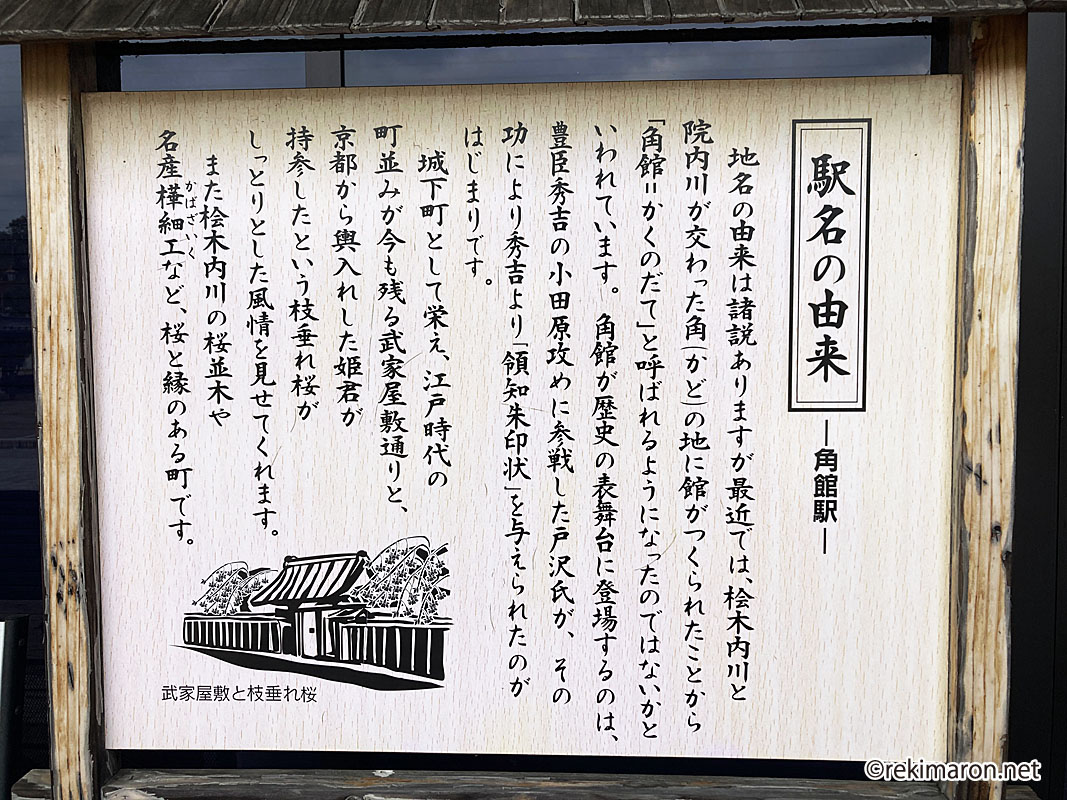 駅名の由来
―角館駅―
地名の由来は諸説ありますが最近では、桧木内川と
院内川が交わった角(かど)の地に館がつくられたことから
「角館=かくのだて」と呼ばれるようになったのではないかと
いわれています。 角館が歴史の表舞台に登場するのは、
豊臣秀吉の小田原攻めに参戦した戸沢氏が、その
功により秀吉より「領知朱印状」を与えられたのが
はじまりです。
城下町として栄え、江戸時代の
町並みが今も残る武家屋敷通りと、
京都から輿入れした姫君が
持参したという枝垂れ桜が
しっとりとした風情を見せてくれます。
また桧木内川の桜並木や
かばざいく
名産樺細工など、桜と縁のある町です。
武家屋敷と枝垂れ桜
©rekimaron.net